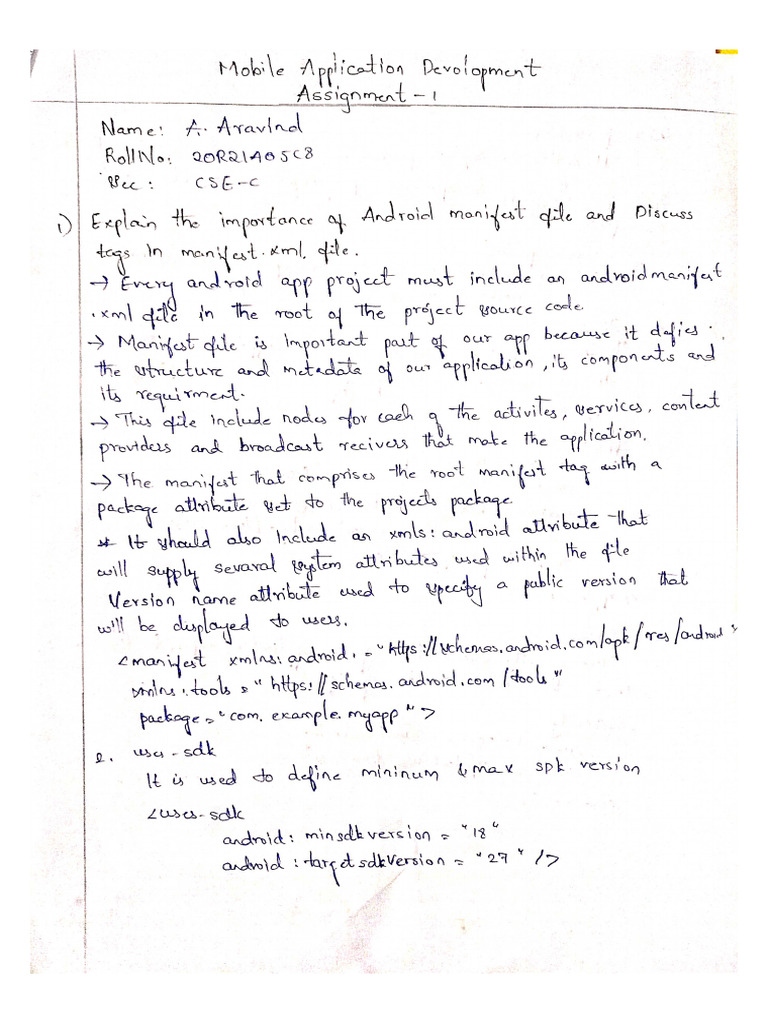 Mobile Application Devolopment
Assignment - 1
Name: A. Aravind
Roll No: 20R21A05C8
Sec : CSE-C
1) Explain the importance of Android manifest file and Discuss
tags in manifest.xml. file.
→ Every android app project must include an android manifest
.xml file in the root of the project source code.
→ Manifest file is important part of our app because it defies.
the structure and metadata of our application, its components and
its requirment.
→ This file include nodes for each of the activites, services, content
providers and broadcast recivers that make the application.
→ The manifest that comprises the root manifest tag with a
package attribute set to the projects package
* It should also include an xmls: android attribute that
will supply sevaral system attributes used within the file
Version name attribute used to specify a public version that
will be displayed to users.
<manifest xmlns: android. = "https://schemas.android.com/apk/res/android"
xmlns: tools = "https://schemas.android.com/tools"
package = "com.example.myapp">
2. uses-sdk
It is used to define mininum & max spk version
<uses-sdk
android: minsdkversion = "18"
android: targetsdkVersion = "27" />